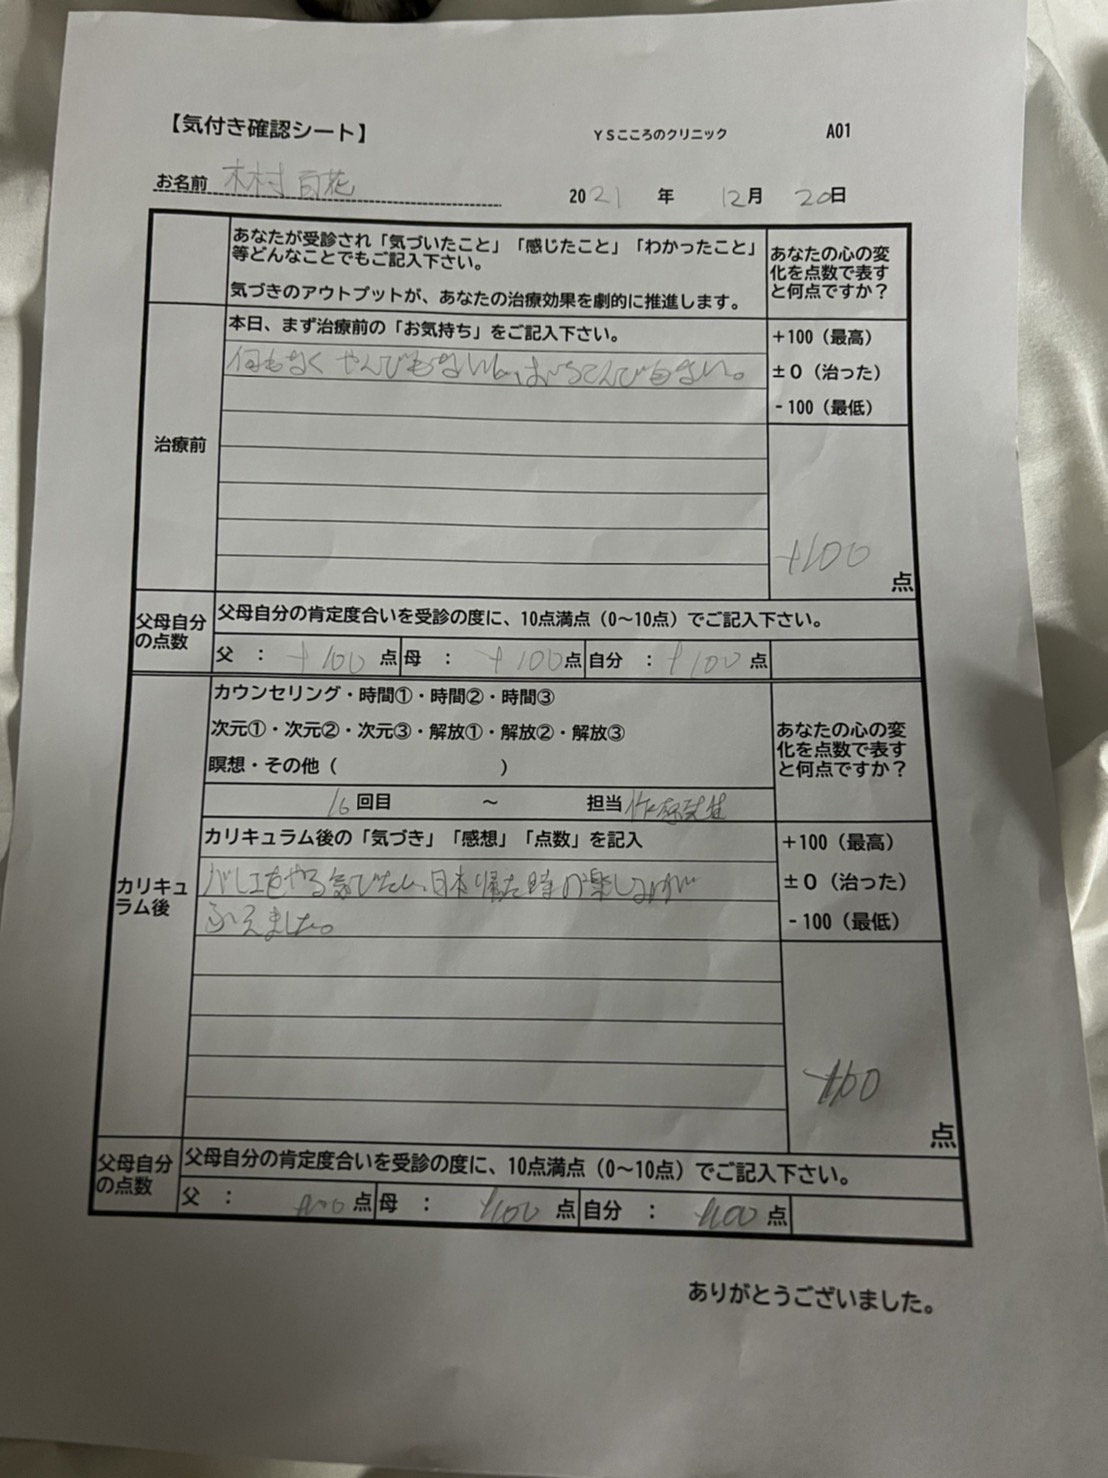 【気付き確認シート】
YSこころのクリニック
A01
お名前 木村百花
2021年 12月 20日
あなたが受診され「気づいたこと」「感じたこと」「わかったこと」
等どんなことでもご記入下さい。
気づきのアウトプットが、あなたの治療効果を劇的に推進します。
あなたの心の変
化を点数で表す
と何点ですか？
治療前
本日、まず治療前の「お気持ち」をご記入下さい。
何もなくやんでもないし、おちこんでもない。
+100（最高）
±0（治った）
-100（最低）
+100 点
父母自分
の点数
父母自分の肯定度合いを受診の度に、10点満点（0～10点）でご記入下さい。
父 ： +100 点 母 ： +100点 自分 ： +100 点
カウンセリング・時間①・時間②・時間③
次元①・次元②・次元③・解放①・解放②・解放③
瞑想・その他（ ）
16回目 ～ 担当
あなたの心の変
化を点数で表す
と何点ですか？
カリキュ
ラム後
カリキュラム後の「気づき」「感想」「点数」を記入
バレエをやる気でたし、日本帰た時の楽しみが
ふえました。
+100（最高）
±0（治った）
-100（最低）
+100
点
父母自分
の点数
父母自分の肯定度合いを受診の度に、10点満点（0～10点）でご記入下さい。
父 ： +100 点 母 ： +100 点 自分 ： +100 点
ありがとうございました。